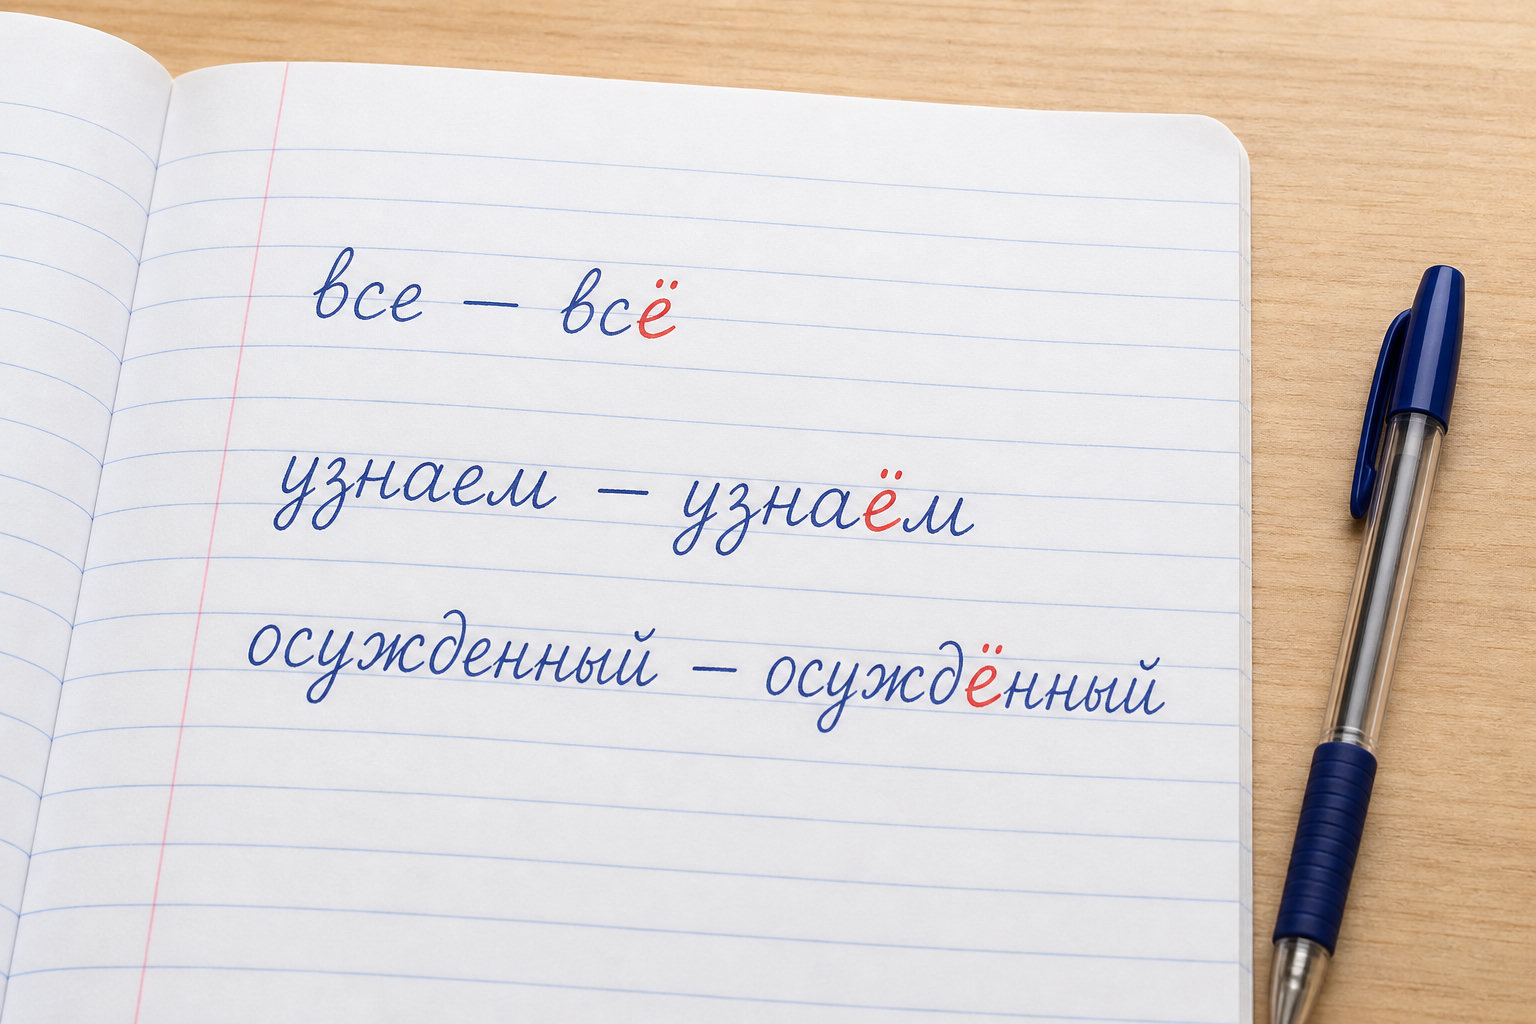 все — всё
узнаем — узнаём
осужденный — осуждённый